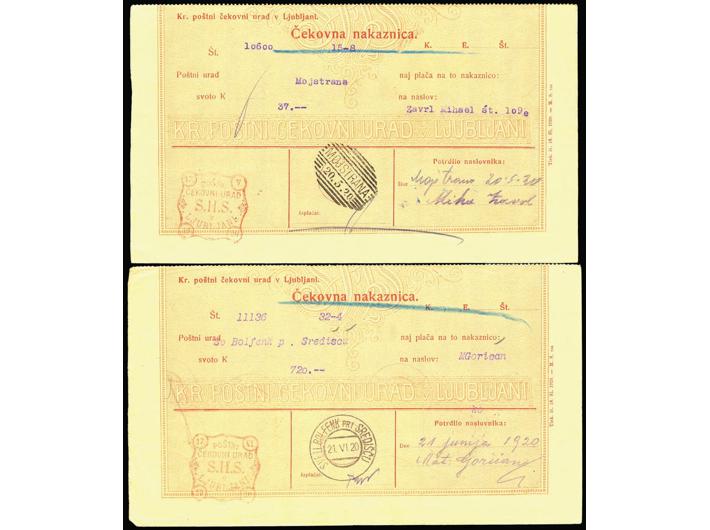 Kr. poštni čekovni urad v Ljubljani.
Čekovna nakaznica.
Št. 10600 15-8 K. E. Št.
Poštni urad Mojstrana naj plača na to nakaznico:
svoto K 37.-- na naslov: Zavrl Mihael št. 109
KR. POŠTNI ČEKOVNI URAD V LJUBLJANI
Potrdilo naslovnika:
MOJSTRANA
20.5.20
Dne Mojstrana 20-5-20
Izplačal:
ČEKOVNI URAD
S.H.S.
V
LJUBLJANI
Kr. poštni čekovni urad v Ljubljani.
Čekovna nakaznica.
K. E. Št.
Št. 11136 32-4
Poštni urad Bolfenk p. Središču naj plača na to nakaznico:
svoto K 720.-- na naslov: MGorican
KR. POŠTNI ČEKOVNI URAD V LJUBLJANI
Potrdilo naslovnika:
BOLFENK PRI SREDIŠČU
21.VI.20
Dne 21 junija 1920
Izplačal:
Mat. Goričane
POŠTNI
ČEKOVNI URAD
S.H.S.
V
LJUBLJANI